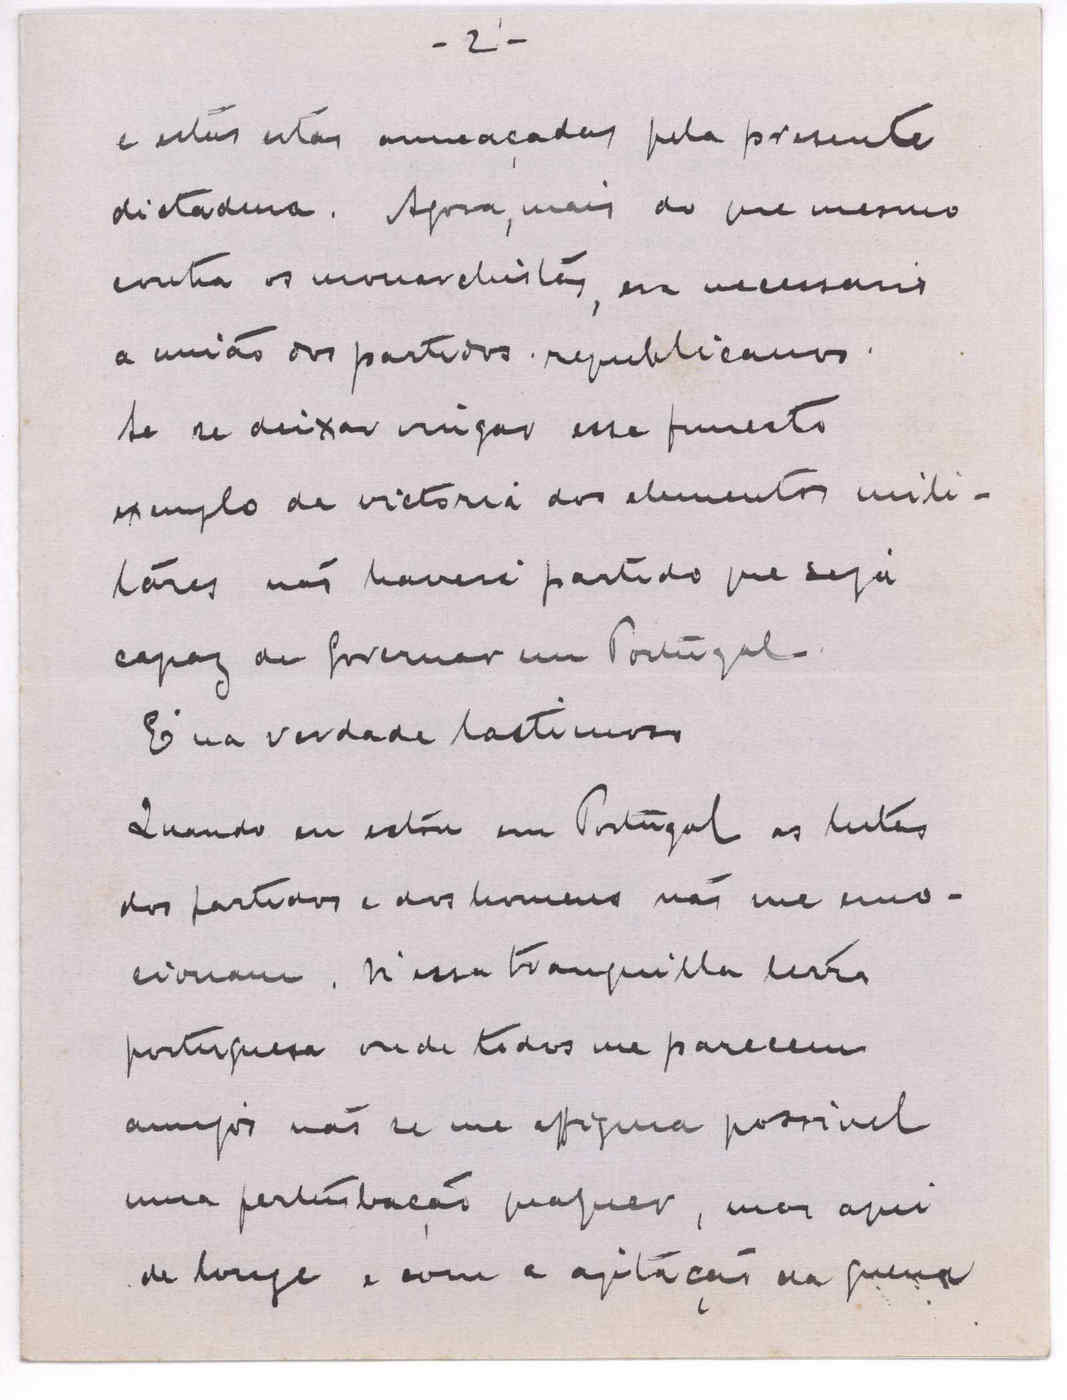 - 2 -
e estas estão ameaçadas pela presente
dictadura. Agora, mais do que mesmo
contra os monarchistas, era necessario
a união dos partidos republicanos.
Se se deixar vingar esse funesto
exemplo da victoria dos elementos mili-
táres não haverá partido que seja
capaz de governar em Portugal.
E' na verdade lastimoso
Quando eu estou em Portugal as lutas
dos partidos e dos homens não me emo-
cionam. N'essa tranquilla terra
portuguesa onde todos me parecem
amigos não se me affigura possivel
uma perturbação qualquer, mas aqui
de longe e com a agitação da guerra